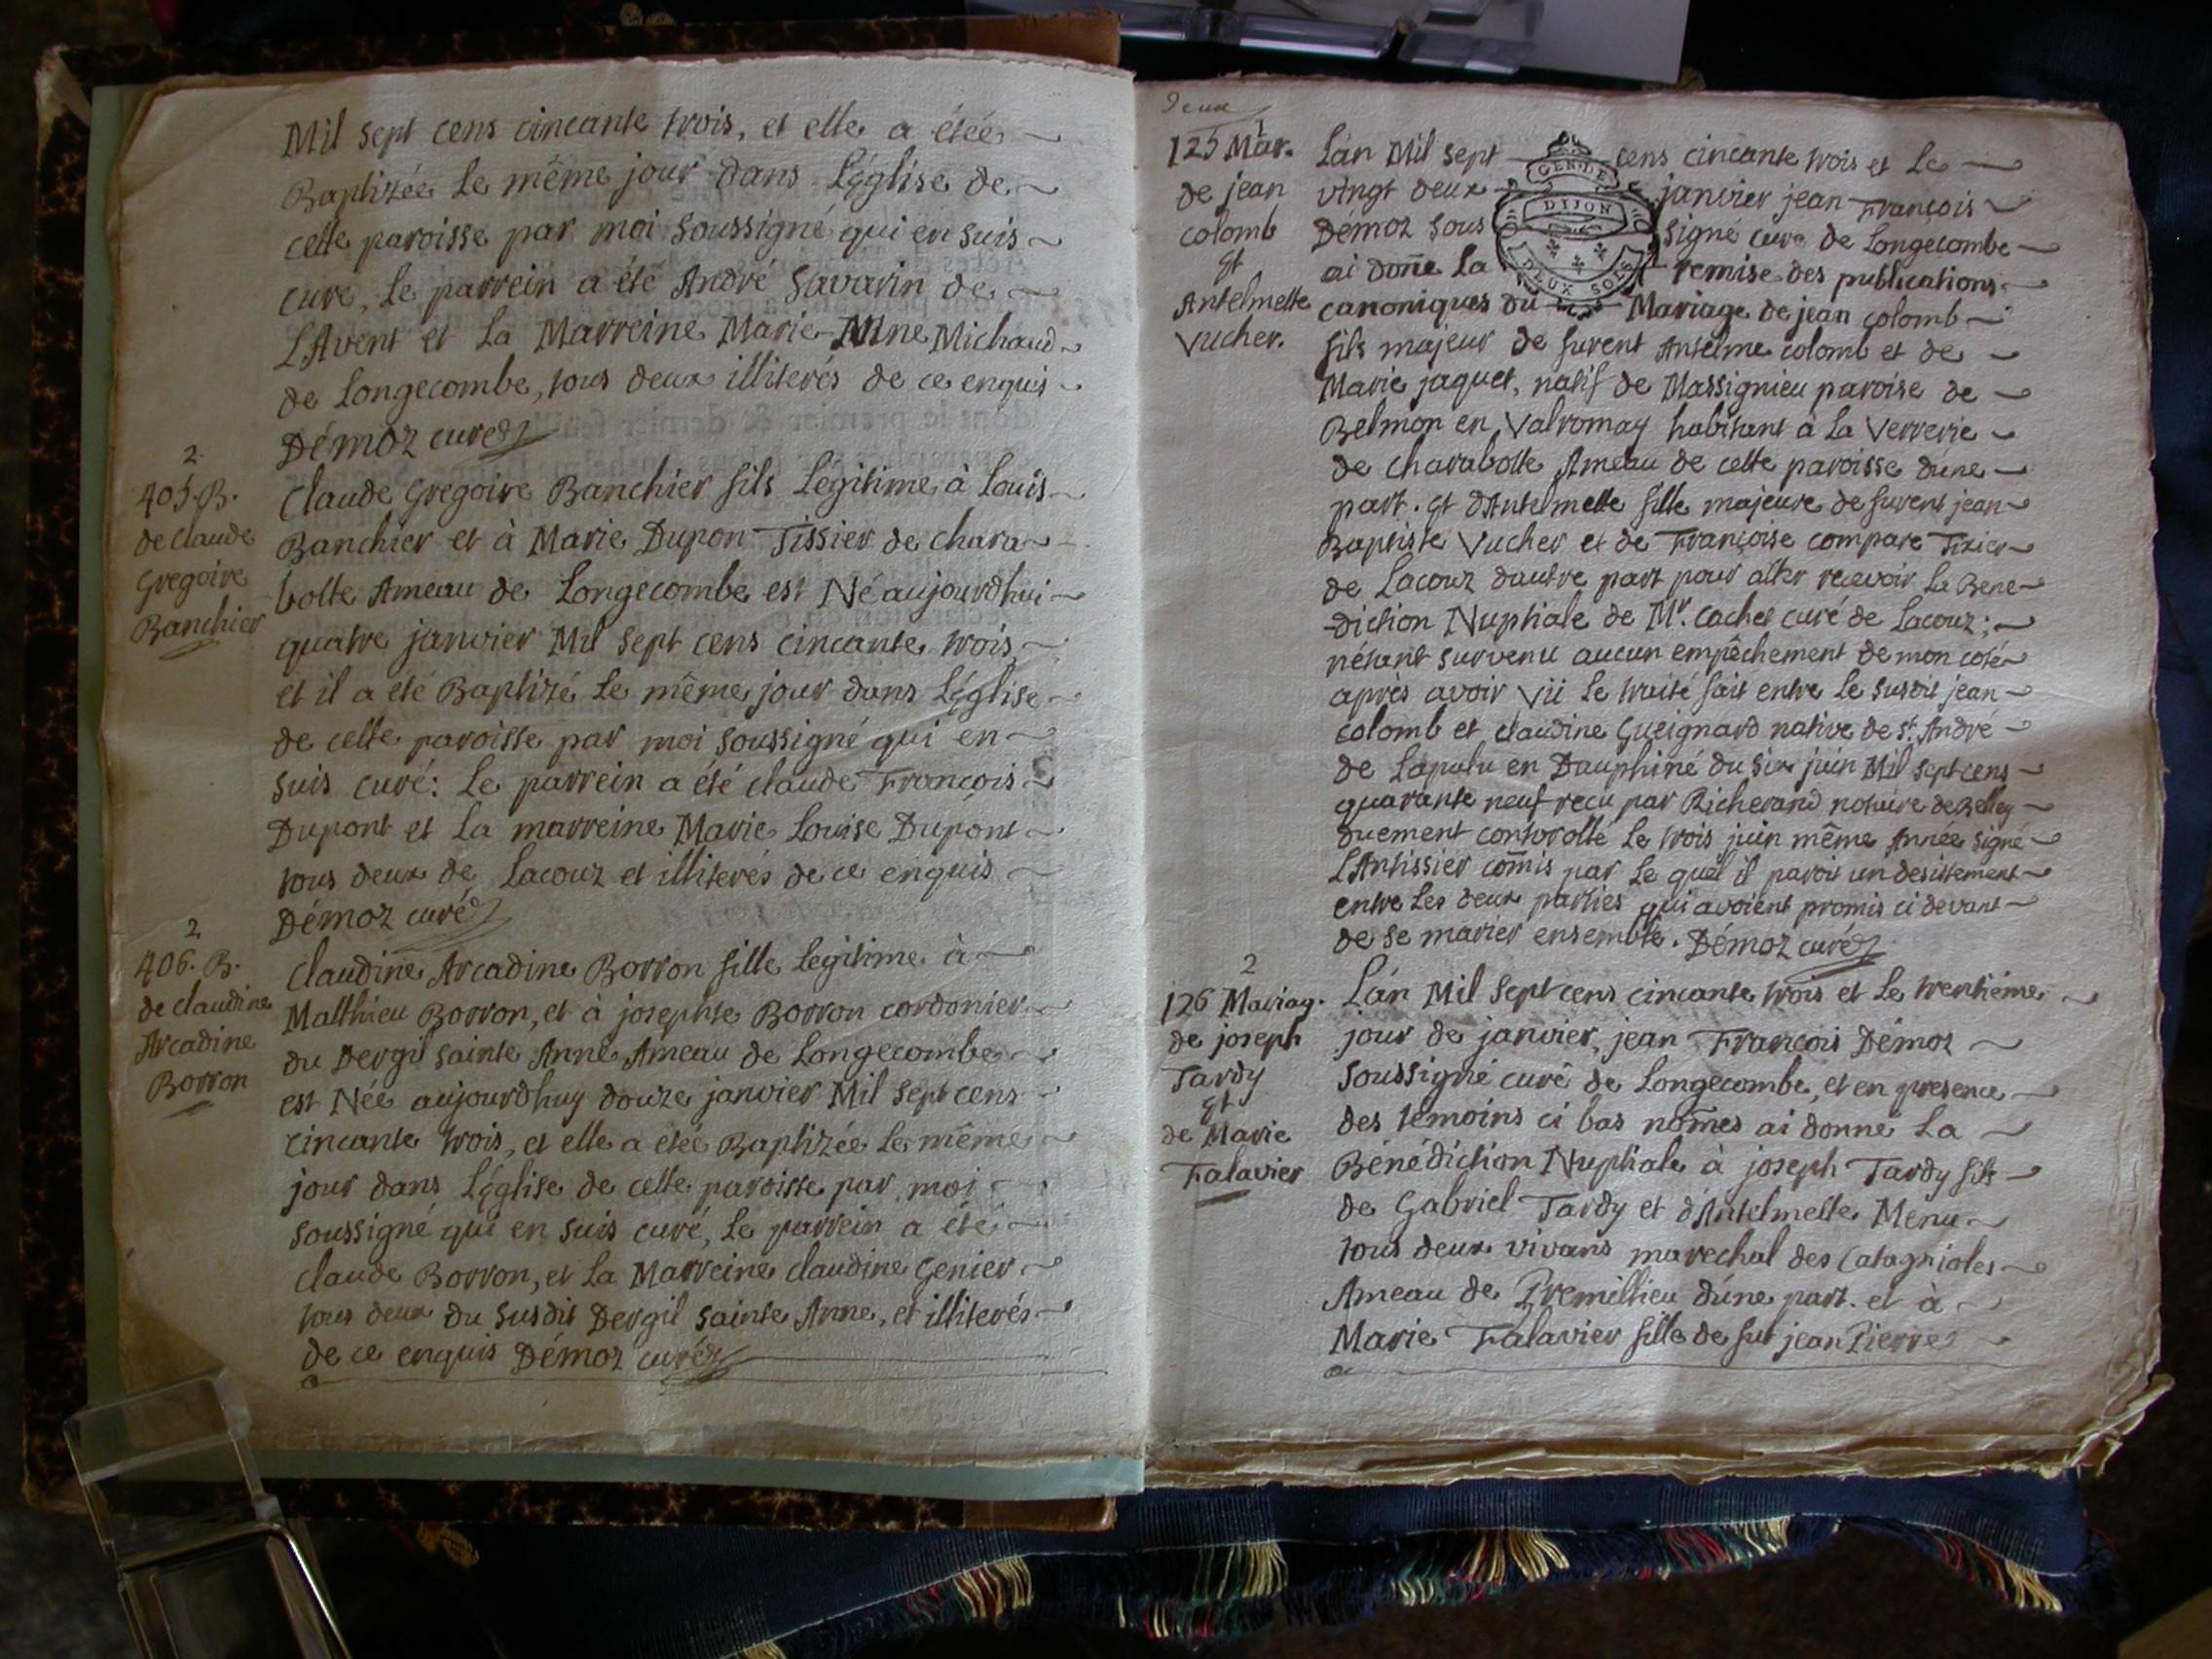 Mil sept cens cincante trois, et elle a étée
Baptizée Le même jour dans L'église de
cette paroisse par moi soussigné qui en suis
curé, Le parrein a été André Savarin de
L'Avent et La Marreine Marie Michaud
de Longecombe, tous deux illiterés de ce enquis
Démoz curé
2.
405. B.
de Claude
Gregoire
Banchier
Claude Gregoire Banchier fils Légitime à Louis
Banchier et à Marie Dupon Tissier de chara-
botte Ameau de Longecombe est Né aujourdhui
quatre janvier Mil sept cens cincante trois
et il a été Baptizé Le même jour dans L'église
de cette paroisse par moi soussigné qui en
suis curé: Le parrein a été claude François
Dupont et La marreine Marie Louise Dupont
tous deux de Lacouz et illiterés de ce enquis
Démoz curé
2
406. B.
de claudine
Arcadine
Borron
Claudine Arcadine Borron fille Legitime à
Matthieu Borron, et à josephte Borron cordonier
du Dergil sainte Anne Ameau de Longecombe
est Née aujourdhuy douze janvier Mil sept cens
cincante trois, et elle a étée Baptizée Le même
jour dans L'église de cette paroisse par moi
soussigné qui en suis curé, Le parrein a été
claude Borron, et La Marreine claudine Genier
tous deux du susdit Dergil sainte Anne, et illiterés
de ce enquis Démoz curé
Deux
1
125 Mar.
de jean
colomb
Et
Antelmette
Vucher.
L'an Mil sept cens cincante trois et Le
vingt deux janvier jean François
Démoz sous signé curé de Longecombe
ai donne La remise des publications
canoniques du Mariage de jean colomb
GEN. DE
DIJON
DEUX SOLS
fils majeur de furent Antelme colomb et de
Marie jaquet, natif de Massignieu paroise de
Belmon en Valromay habitant à La Verrerie
de charabotte Ameau de cette paroisse d'une
part. Et d'Antelmette fille majeure de furent jean
Baptiste Vucher et de Françoise compare Tixier
de Lacouz dautre part pour aller recevoir La Bene-
diction Nuptiale de Mr. cochet curé de Lacouz;
nétant survenu aucun empêchement de mon coté
après avoir vü Le traité fait entre Le susdit jean
colomb et claudine Gueignard native de St. André
de Lapalu en Dauphiné du six juin Mil sept cens
quarante neuf recu par Richerand notaire de Belley
duement controllé Le trois juin même Année signé
L'Antissier comis par Le quel il paroit un desistement
entre Les deux parties qui avoient promis ci devant
de se marier ensemble. Démoz curé
2
126 Mariag.
de joseph
Tardy
Et
de Marie
Falavier
L'an Mil sept cens cincante trois et Le trentiéme
jour de janvier, jean François Démoz
soussigné curé de Longecombe, et en presence
des temoins ci bas nomes ai donné La
Bénédiction Nuptiale à joseph Tardy fils
de Gabriel Tardy et d'Antelmette Menu
tous deux vivans marechal des Catagnioles
Ameau de Premillieu d'une part. et à
Marie Falavier fille de fut jean Pierre